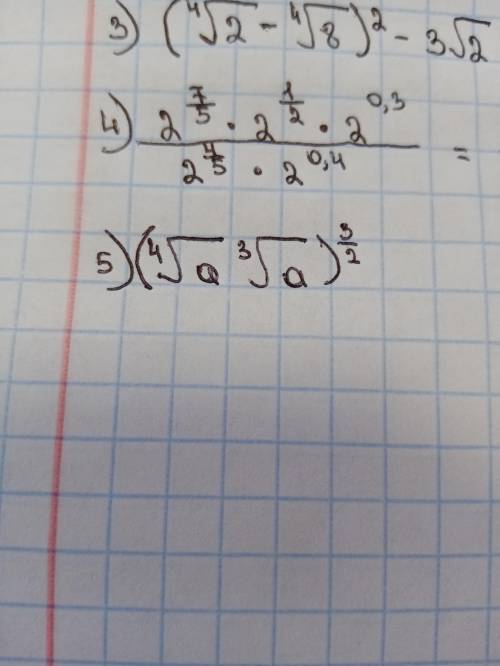 3) (⁴√2 - ⁴√8)² - 3√2
4) (2^(7/5) · 2^(1/2) · 2^(0,3)) / (2^(4/5) · 2^(0,4)) =
5) (⁴√a ³√a)^(3/2)